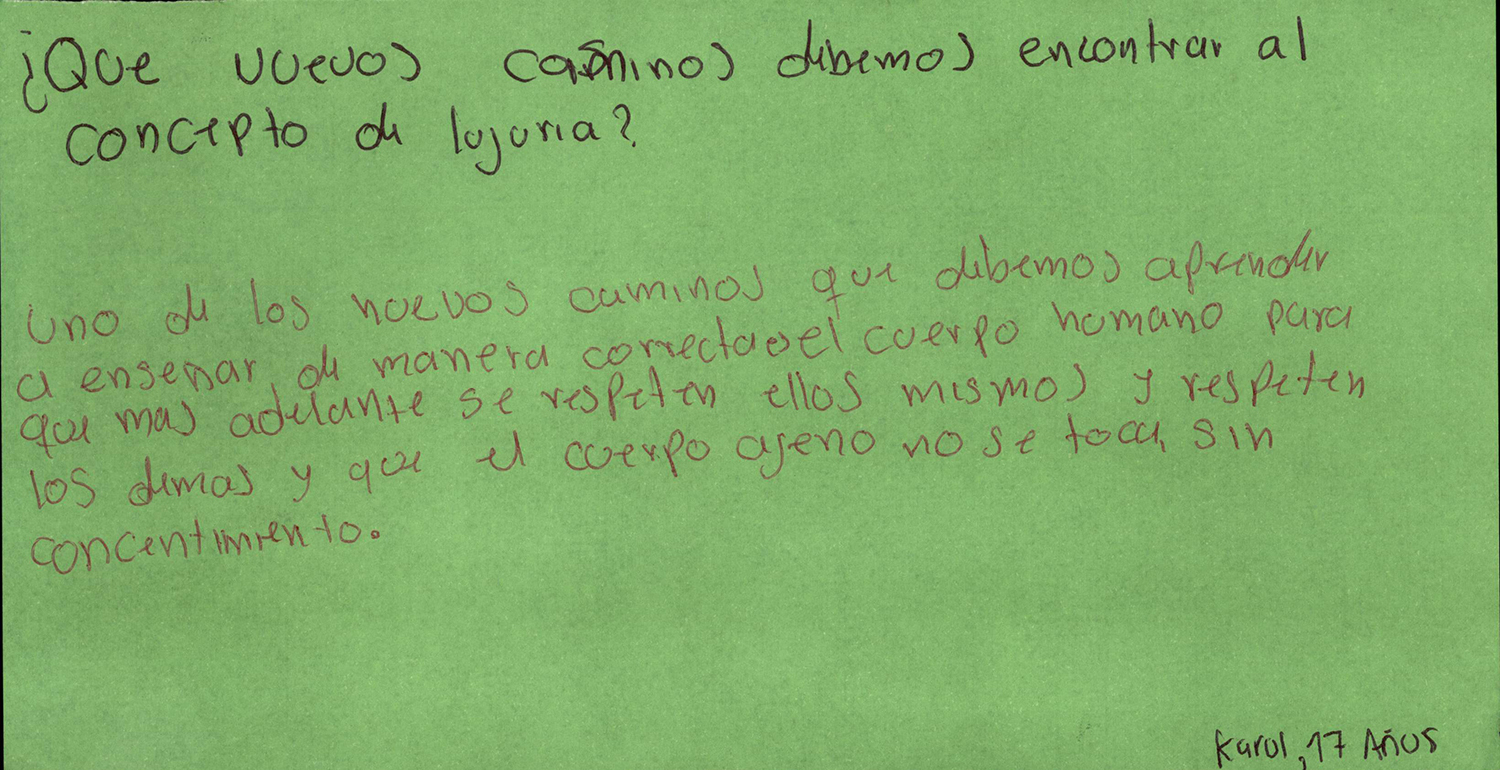 ¿Que nuevos caminos debemos encontrar al
concepto de lujuria?
Uno de los nuevos caminos que debemos aprender
a enseñar, de manera correcta el cuerpo humano para
que mas adelante se respeten ellos mismos y respeten
los demas y que el cuerpo ajeno no se toca sin
concentimiento.
Karol, 17 Años